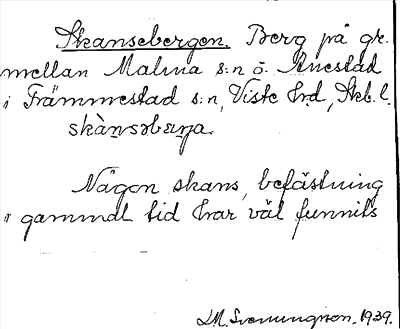 Skansebergen. Berg på gr.
mellan Malma s:n o. Ruestad
i Främmestad s:n, Viste hrd, Skb. l.
skànsəbærja.
Någon skans, befästning
i gammal tid har väl funnits
M. Svenungson. 1939.